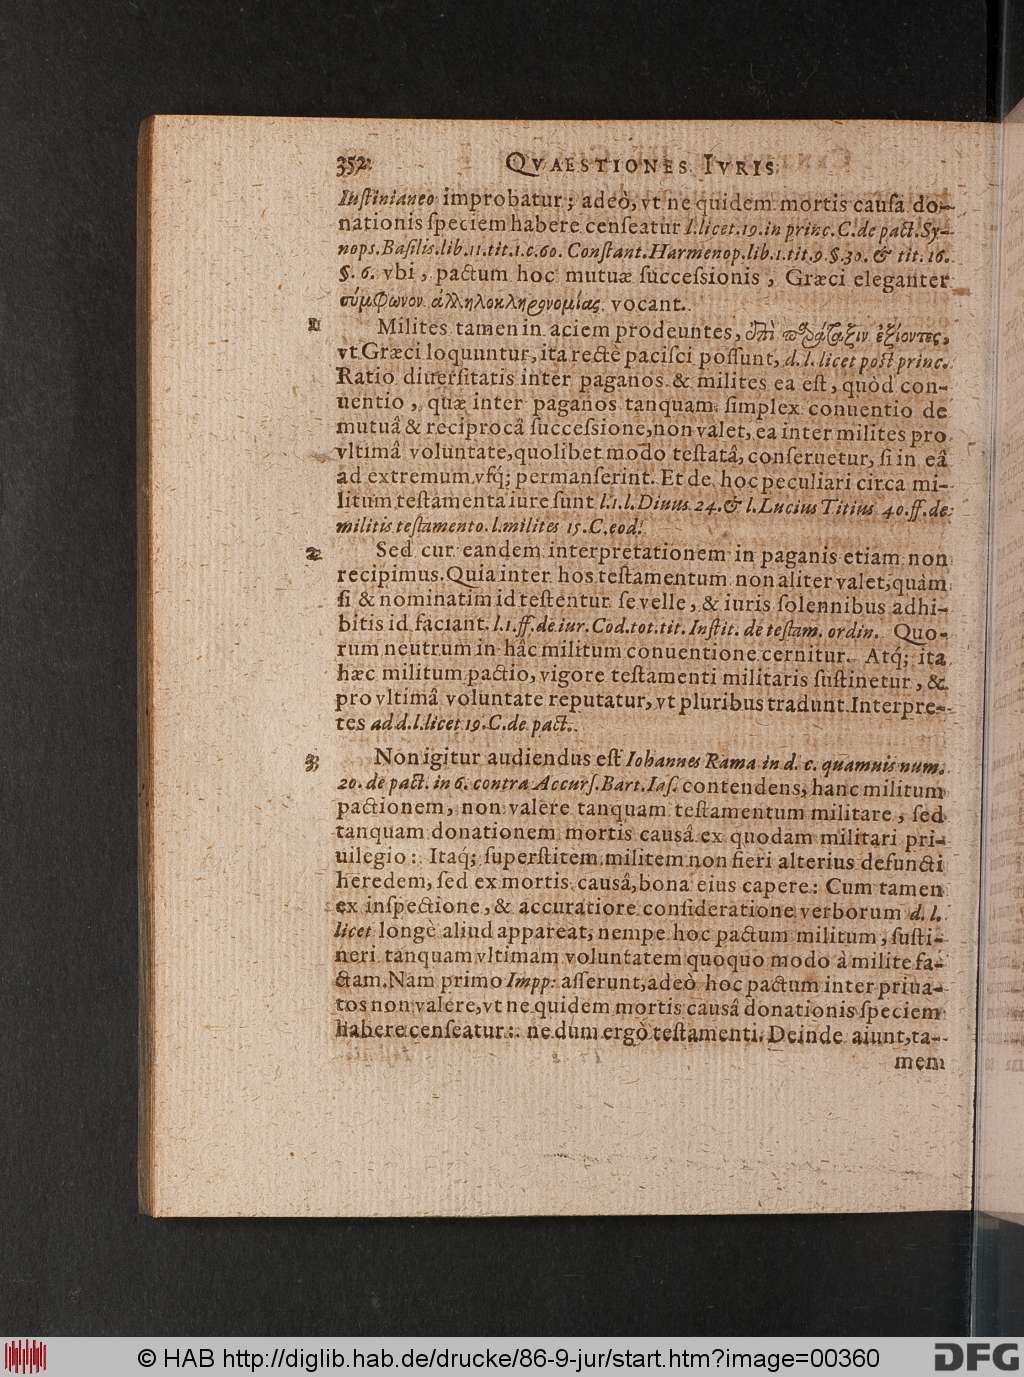 352
QVAESTIONES IVRIS
Iuſtinianeo improbatur; adeò, vt ne quidem mortis cauſa do-
nationis ſpeciem habere cenſeatur l. licet. 19. in princ. C. de pact. Sy-
nops. Baſilis. lib. 11. tit. 1. c. 60. Conſtant. Harmenop. lib. 1. tit. 9. §. 30. & tit. 16.
§. 6. vbi, pactum hoc mutuæ ſucceſsionis, Græci eleganter
σύμφωνον ἀλληλοκληρονομίας vocant.
Milites tamen in aciem prodeuntes, ἐπὶ παράταξιν ἐξίοντες,
vt Græci loquuntur, ita rectè paciſci poſſunt, d. l. licet poſt princ.
Ratio diuerſitatis inter paganos & milites ea eſt, quòd con-
uentio, quæ inter paganos tanquam ſimplex conuentio de
mutuâ & reciprocâ ſucceſsione, non valet, ea inter milites pro
vltimâ voluntate, quolibet modo teſtatâ, conſeruetur, ſi in eâ
ad extremum vſq́; permanſerint. Et de hoc peculiari circa mi-
litum teſtamenta iure ſunt l. 1. l. Diuus 24. & l. Lucius Titius 40. ff. de
militis teſtamento. l. milites 15. C. eod.
2 Sed cur eandem interpretationem in paganis etiam non
recipimus. Quia inter hos teſtamentum non aliter valet, quàm
ſi & nominatim id teſtentur ſe velle, & iuris ſolennibus adhi-
bitis id faciant. l. 1. ff. de iur. Cod. tot. tit. Inſtit. de teſtam. ordin. Quo-
rum neutrum in hâc militum conuentione cernitur. Atq́; ita
hæc militum pactio, vigore teſtamenti militaris ſuſtinetur, &
pro vltimâ voluntate reputatur, vt pluribus tradunt Interpre-
tes ad d. l. licet 19. C. de pact.
3 Non igitur audiendus eſt Iohannes Rama in d. c. quamuis num.
20. de pact. in 6. contra Accurſ. Bart. Iaſ. contendens, hanc militum
pactionem, non valere tanquam teſtamentum militare, ſed
tanquam donationem mortis causâ ex quodam militari pri-
uilegio: Itaq́; ſuperſtitem militem non fieri alterius defuncti
heredem, ſed ex mortis causâ, bona eius capere: Cum tamen
ex inſpectione, & accuratiore conſideratione verborum d. l.
licet longè aliud appareat, nempe hoc pactum militum, ſuſti-
neri tanquam vltimam voluntatem quoquo modo à milite fa-
ctam. Nam primo Impp: aſſerunt, adeò hoc pactum inter priua-
tos non valere, vt ne quidem mortis causâ donationis ſpeciem
habere cenſeatur: ne dum ergò teſtamenti. Deinde aiunt, ta-
men
© HAB http://diglib.hab.de/drucke/86-9-jur/start.htm?image=00360
DFG